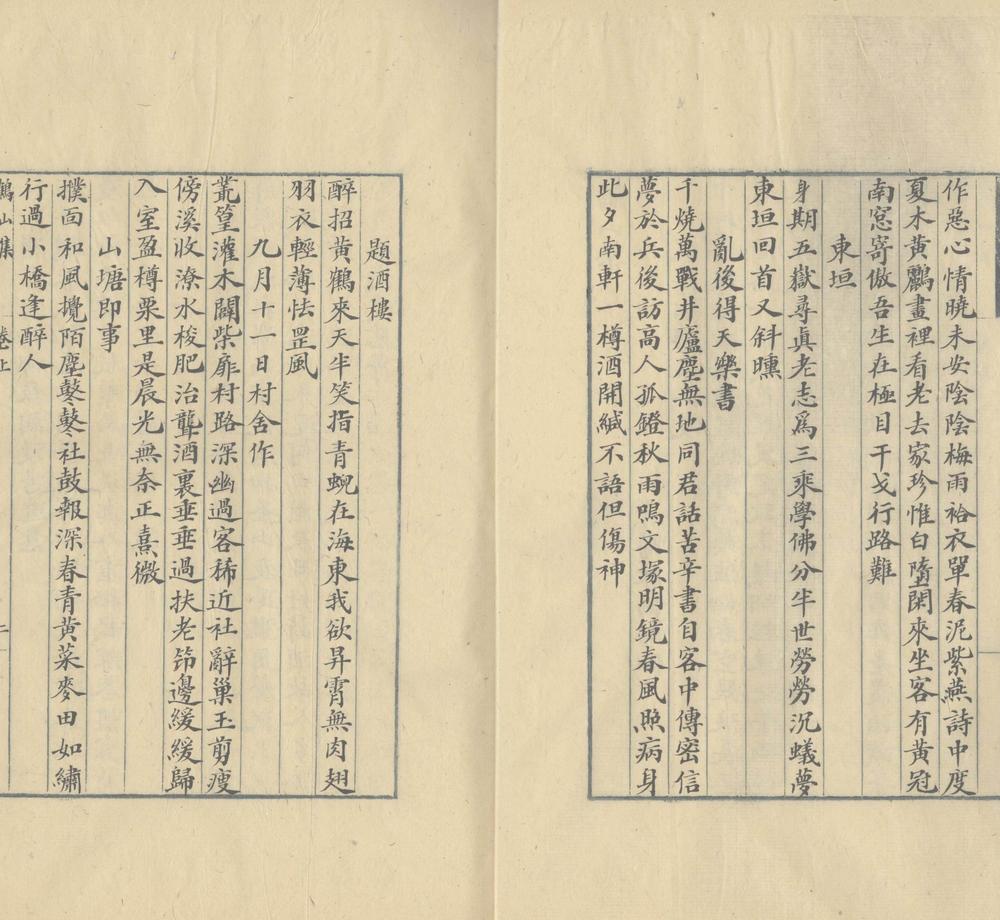 作惡心情曉未安陰陰梅雨袷衣單春泥紫燕詩中度
夏木黃鸝畫裡看老去家珍惟白墮閑來坐客有黃冠
南窓寄傲吾生在極目干戈行路難
東垣
身期五嶽尋眞老志爲三乘學佛分半世勞勞沉蟻夢
東垣回首又斜曛
亂後得天樂書
千燒萬戰井廬塵無地同君話苦辛書自客中傳密信
夢於兵後訪高人孤鐙秋雨鳴文塚明鏡春風照病身
此夕南軒一樽酒開緘不語但傷神
題酒樓
醉招黃鶴來天半笑指青蜺在海東我欲昇霄無肉翅
羽衣輕薄怯罡風
九月十一日村舍作
叢篁灌木闢柴扉村路深幽過客稀近社辭巢玉剪瘦
傍溪收潦水梭肥治聾酒裏垂垂過扶老笻邊緩緩歸
入室盈樽栗里是晨光無奈正熹微
山塘即事
撲面和風攪陌塵鼕鼕社鼓報深春青黃菜麥田如繡
行過小橋逢醉人
鶴山集 卷上